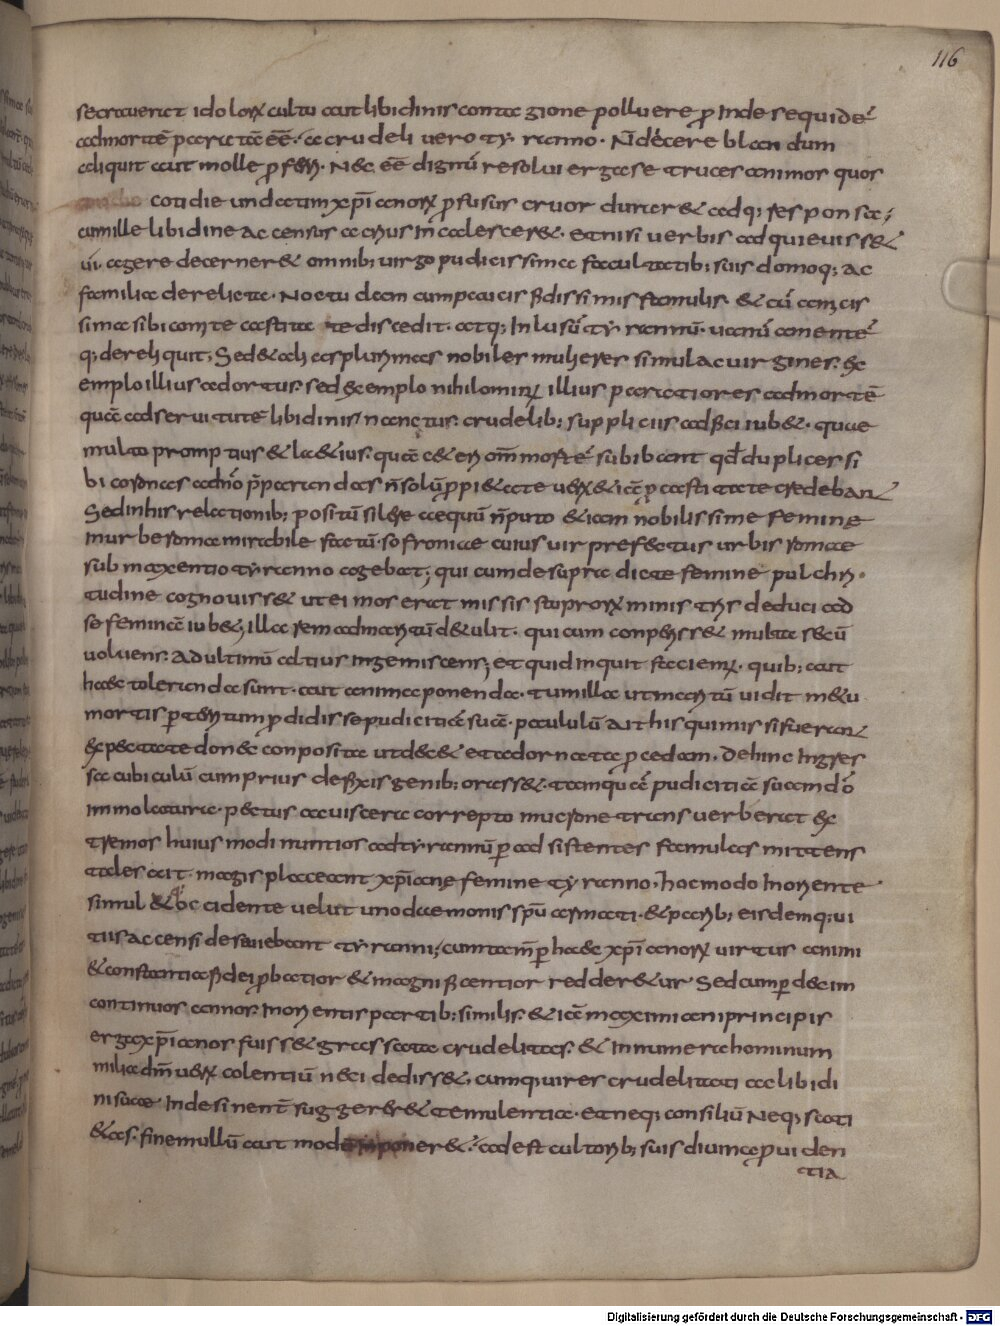 116
secrauerat idolorꝝ cultu aut libidinis contagione polluere ꝓinde sequidē
admortē paratā eē· a crudeli uero tyranno· N̄ decere blandum
aliquit aut molle ꝓferri· Nec eē dignū resolui ergase truces animos quos
cotidie undatim xp̄ianorꝝ ꝓfusus cruor duraret adq; responsa;
cumille libidine accensus acrius in̄calesceret· et nisi uerbis adquieuisset
ui agere decerneret omnib; uirgo pudicissima facultatib; suis domoq; ac
familia derelicta· Noctu deam cumpaucis fidissimis famulis· & cū amicis
sima sibi comite castitate discedit· atq; Inlusū tyrannū· uanū amentē
q; dereliquit; Sed & alias plurimas nobiles mulieres simulac uirgines· Ex
emplo illius adortus· sed exemplo nihilominꝰ illius paratiores admortē
quā adseruitutē libidinis nanctus· crudelib; suppliciis adfici iubet· quae
multo promptius & laetius· quā aeterā om̄ mortē subibant qd̄ duplices si
bi coronas adn̄o p̄parandas n̄ solū ꝓpietate uerꝝ & iā ꝓ castitate credebant
Sed inhis relationib; positū silere aequū n̄ puto & iam nobilissime femine
murbe roma mirabile factū· sofroniae cuius uir prefectus urbis romae
sub maxentio tyranno agebat; qui cum de supra dicte femine pulchri·
tudine cognouisset ut ei mos erat missis stuprorꝝ ministris deduci ad
se feminā iubet; illa rem admaritū detulit· qui cum conperisset multa secū
uoluens· Adultimū altius ingemiscens; et quid inquit faciemꝰ· quib; aut
haec toleranda sunt· aut anima ponenda· tum illa ut maritū uidit metu
mortis ꝑterritum ꝓdidisse pudicitiā suā· paululū Ait his quimissi fuerant
expectate donec conposita ut decet et adornata ꝓcedam· dehinc Ingres
sa cubiculū cumprius defixis genib; orasset· tamquā pudicitiā suam dō
immolatura· pectus ac uiscera correpto mucrone trans uerberat ex
tremos huiusmodi nuntios adtyrannū ꝑ adsistentes famulas mittens
tales ait· magis placeant xp̄iane femine tyranno· hocmodo In oriente
simul & occidente uelut uno daemonis sp̄u armati· & parib; eisdemq; ui
tiis accensi deseuiebant tyranni; cumtam̄ ꝑ haec xp̄ianorꝝ uirtus animi
& constantia fidei ꝓbatior & magnificentior redderetur Sed cum ꝑ decim
continuos annos In orientis partib; similis· & iā maximiani principis
erga xp̄ianos fuisset grassata crudelitas· & Innumera hominum
milia dm̄ uerꝝ colentiū neci dedisset, cumq; uires crudelitati ac libidi
ni suae Indesinent̄ suggereret & temulentia· et neq; consiliū Neq; sati
etas· fine nullū aut modū inponeret· adest cultorib; suis diuina ꝓuiden
tia
Digitalisierung gefördert durch die Deutsche Forschungsgemeinschaft - DFG